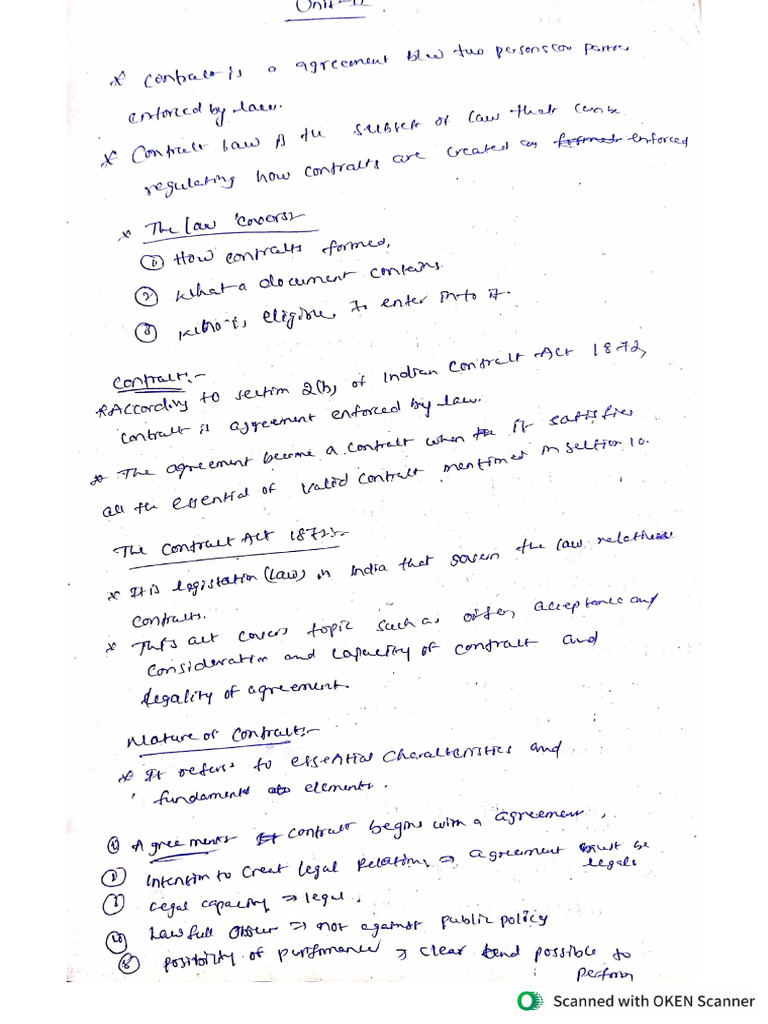 Unit-II
* Contract is a agreement b/w two persons (or) parties
enforced by law.
* Contract law is the subset of law that can be
regulating how contracts are created as formed enforced
* The law covers:-
① How contracts formed,
② What a document contains.
③ Who is, eligible, to enter into it.
Contract:-
* According to section 2(h) of Indian Contract Act 1872,
Contract is agreement enforced by law.
* The agreement become a contract when the it satisfies
all the essential of valid contract mentioned in section 10.
The Contract Act 1872:-
* It is legistation (law) in India that govern the law relative
contracts.
* This act covers topic such as offer, acceptance and
consideration and capacity of contract and
legality of agreement.
Nature of Contract:-
* It refers to essential characteristics and
fundaments elements.
① Agreements contract begins with a agreement,
② Intension to Creat legal Relation, → agreement must be
legals
③ Legal capacity → legal.
④ Lawfull → not against public policy
⑤ possibility of purformance → clear possible to
perform
Scanned with OKEN Scanner